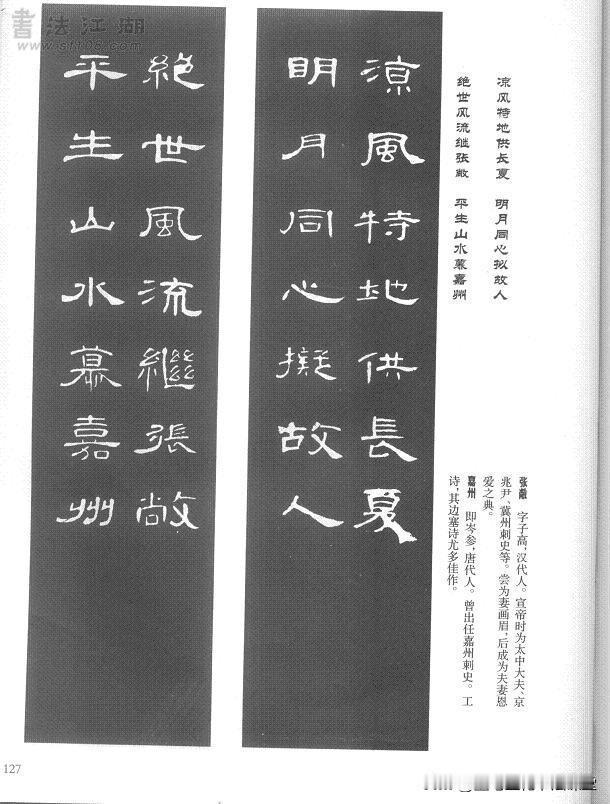 書法江湖
www.sf108.com
凉风特地供长夏　明月同心拟故人
绝世风流继张敞　平生山水慕嘉州
张敞　字子高,汉代人。宣帝时为太中大夫、京
兆尹、冀州刺史等。尝为妻画眉,后成为夫妻恩
爱之典。
嘉州　即岑参,唐代人。曾出任嘉州刺史。工
诗,其边塞诗尤多佳作。
涼風特地供長夏
明月同心擬故人
絶世風流繼張敞
平生山水慕嘉州
127